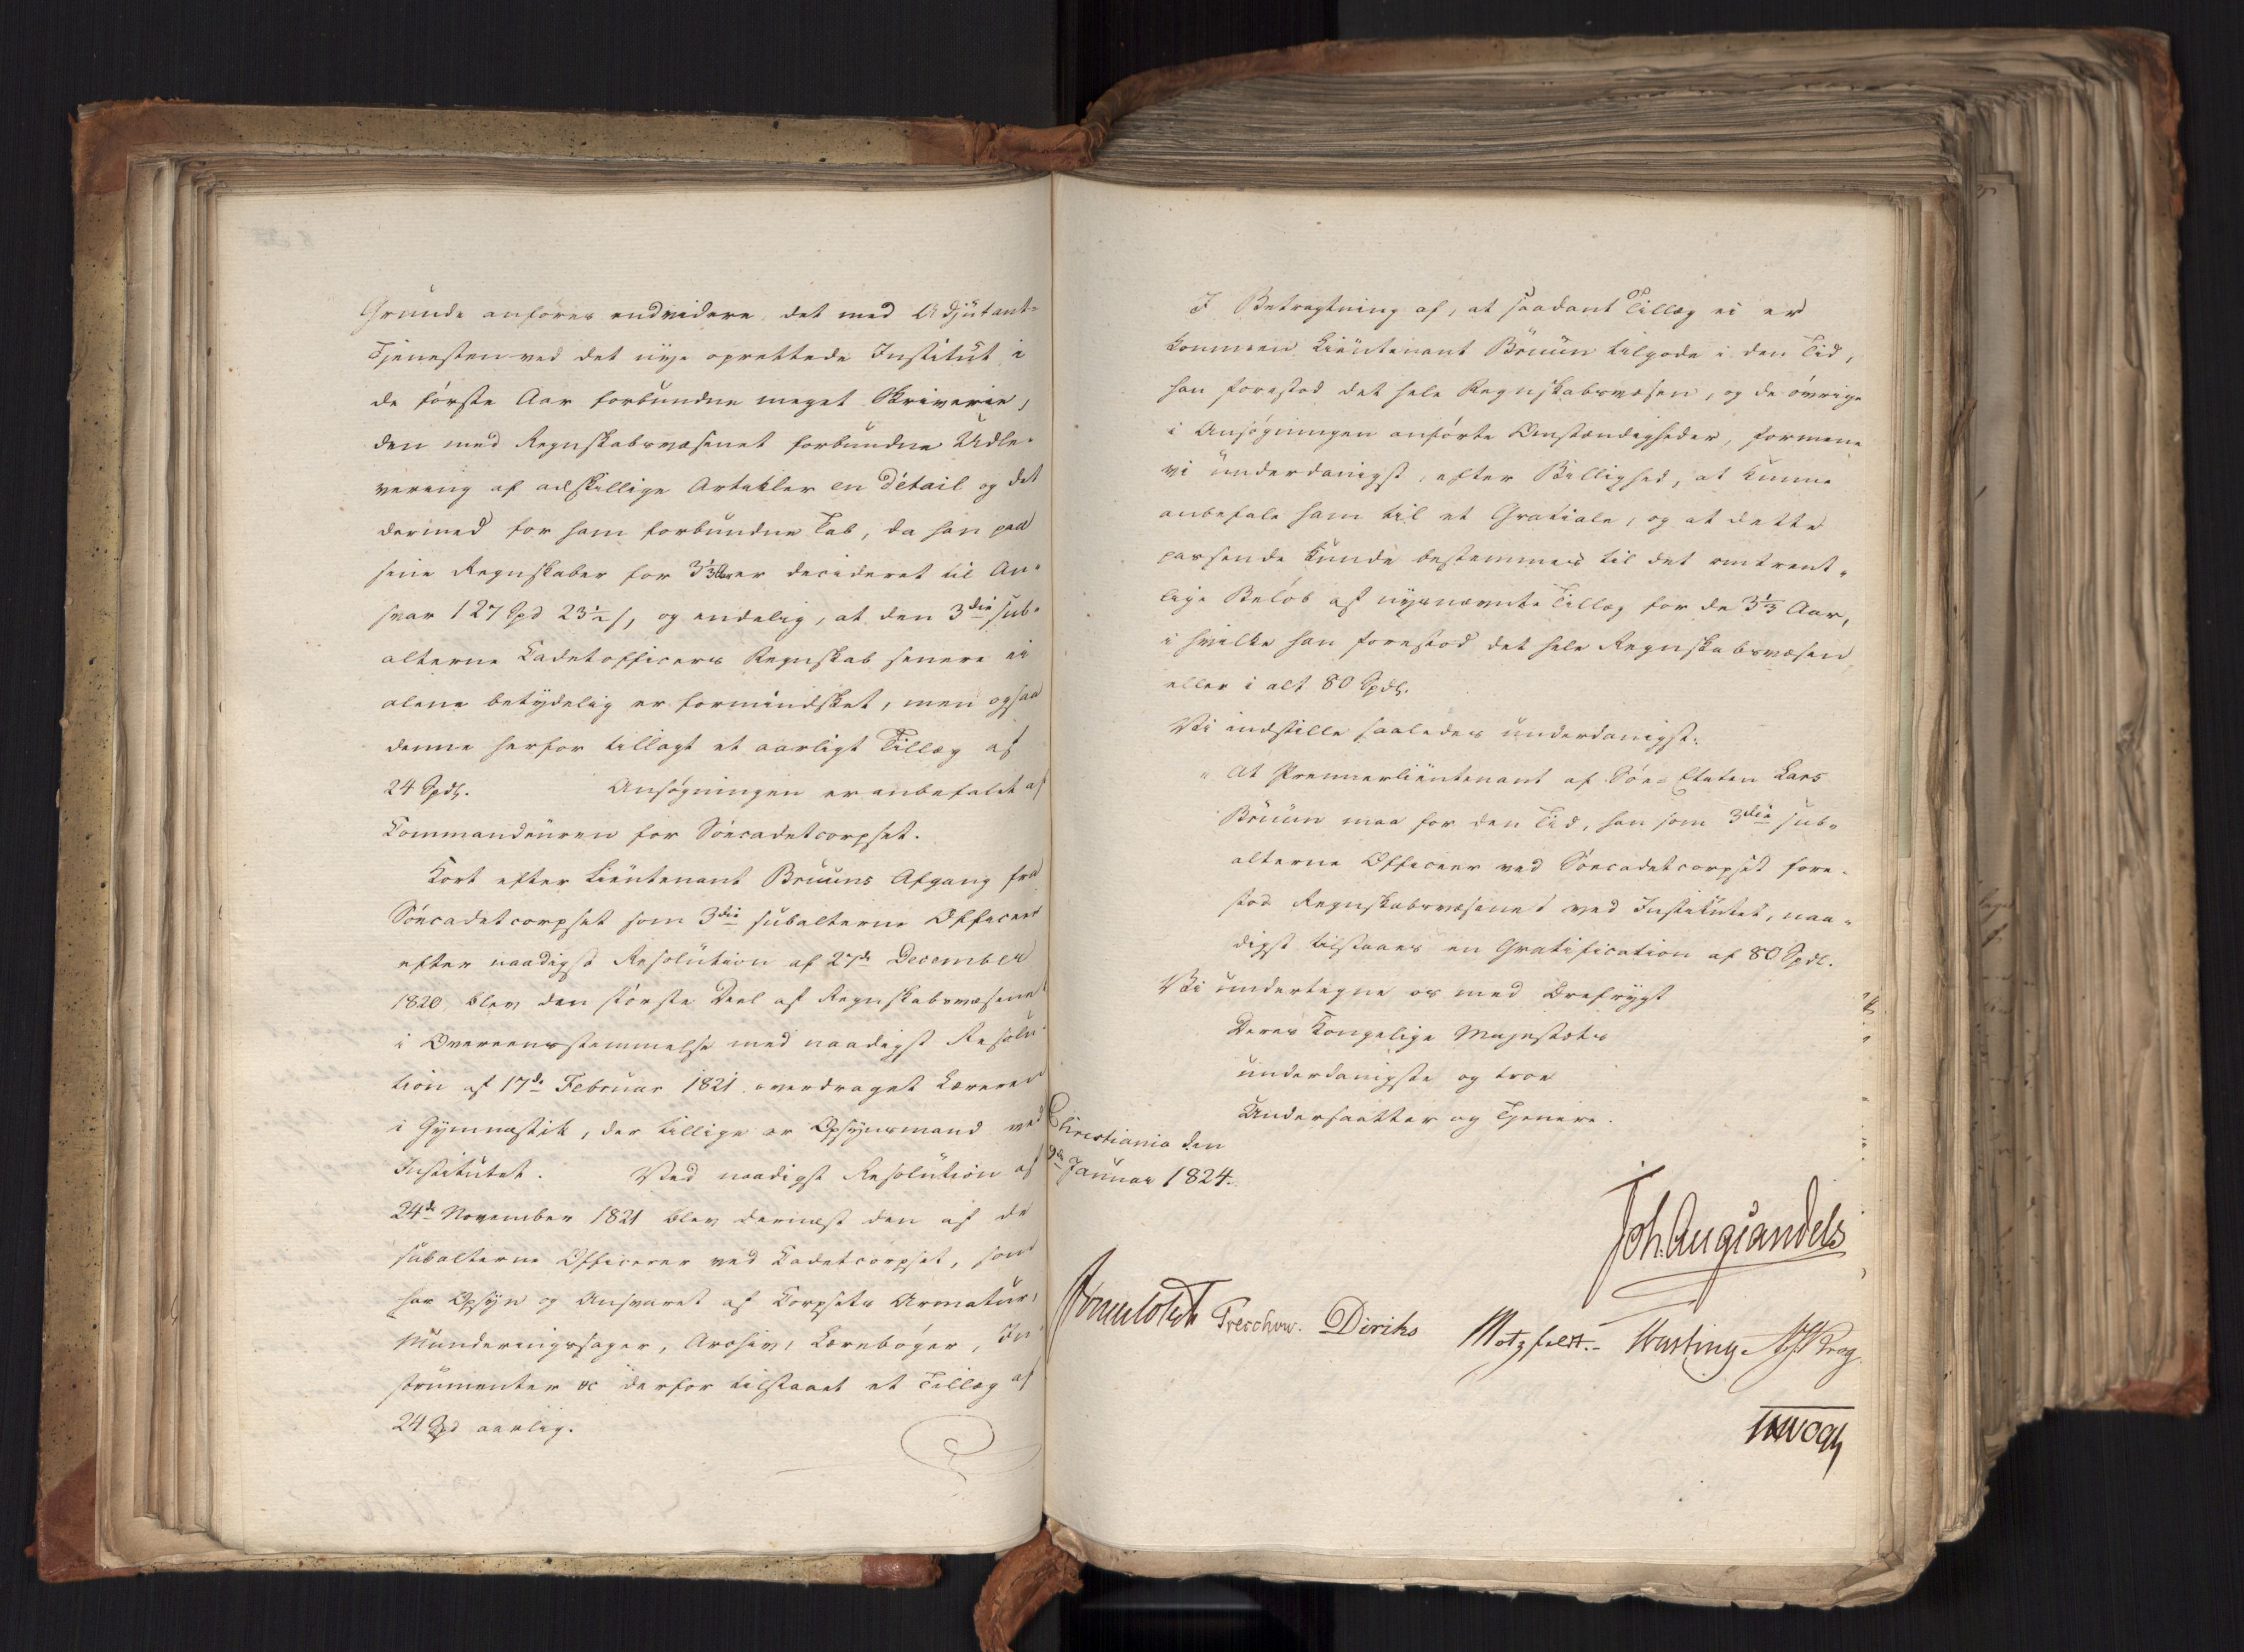 Grunde anføres endvidere, det med Adjutant-
Tjenesten ved det nye oprettede Institut i
de første Aar forbundne meget Skriverie,
den med Regnskabsvæsenet forbundne Udle-
vering af adskillige Artikler en détail og det
dermed for ham forbundne Tab, da han paa
sine Regnskaber for 3⅓ Aar er decideret til An-
svar 127 Spd 23½ s, og endelig, at den 3die sub-
alterne Cadetofficers Regnskab senere ei
alene betydelig er formindsket, men ogsaa
denne herfor tillagt et aarligt Tillæg af
24 Spdl. Ansøgningen er anbefalet af
Commandeuren for Søecadetcorpset.
Kort efter Lieutenant Bruuns Afgang fra
Søecadetcorpset som 3die subalterne Officeer
efter naadigst Resolution af 27de December
1820, blev den største Deel af Regnskabsvæsenet
i Overeensstemmelse med naadigst Resolu-
tion af 17de Februar 1821 overdraget Læreren
i Gymnastik, der tillige er Opsynsmand ved
Institutet. Ved naadigst Resolution af
24de November 1821 blev dernæst den af de
subalterne Officerer ved Cadetcorpset, som
har Opsyn og Ansvaret af Corpsets Armatur,
Munderingssager, Archiv, Lærebøger, In-
strumenter &c derfor tilstaaet et Tillæg af
24 Spd aarlig.
I Betragtning af, at saadant Tillæg ei er
kommen Lieutenant Bruun tilgode i den Tid,
han forestod det hele Regnskabsvæsen, og de øvrige
i Ansøgningen anførte Omstændigheder, formene
vi underdanigst, efter Billighed, at kunne
anbefale ham til et Gratiale, og at dette
passende kunde bestemmes til det omtrent-
lige Beløb af nysnævnte Tillæg for de 3⅓ Aar,
i hvilke han forestod det hele Regnskabsvæsen,
eller i alt 80 Spdl.
Vi indstille saaledes underdanigst:
"At Premierlieutenant af Søe-Etaten Lars
Bruun maa for den Tid, han som 3die sub-
alterne Officeer ved Søecadetcorpset fore-
stod Regnskabsvæsenet ved Institutet, naa-
digst tilstaaes en Gratification af 80 Spdl.
Vi undertegne os med Ærefrygt
Deres Kongelige Majestæts
underdanigste og troe
Undersaatter og Tjenere.
Christiania den
9de Januar 1824.
Joh. Aug Sandels
Sommerfeldt Treschow. Diriks Motzfeldt.- Hasting. Krog
Vogt